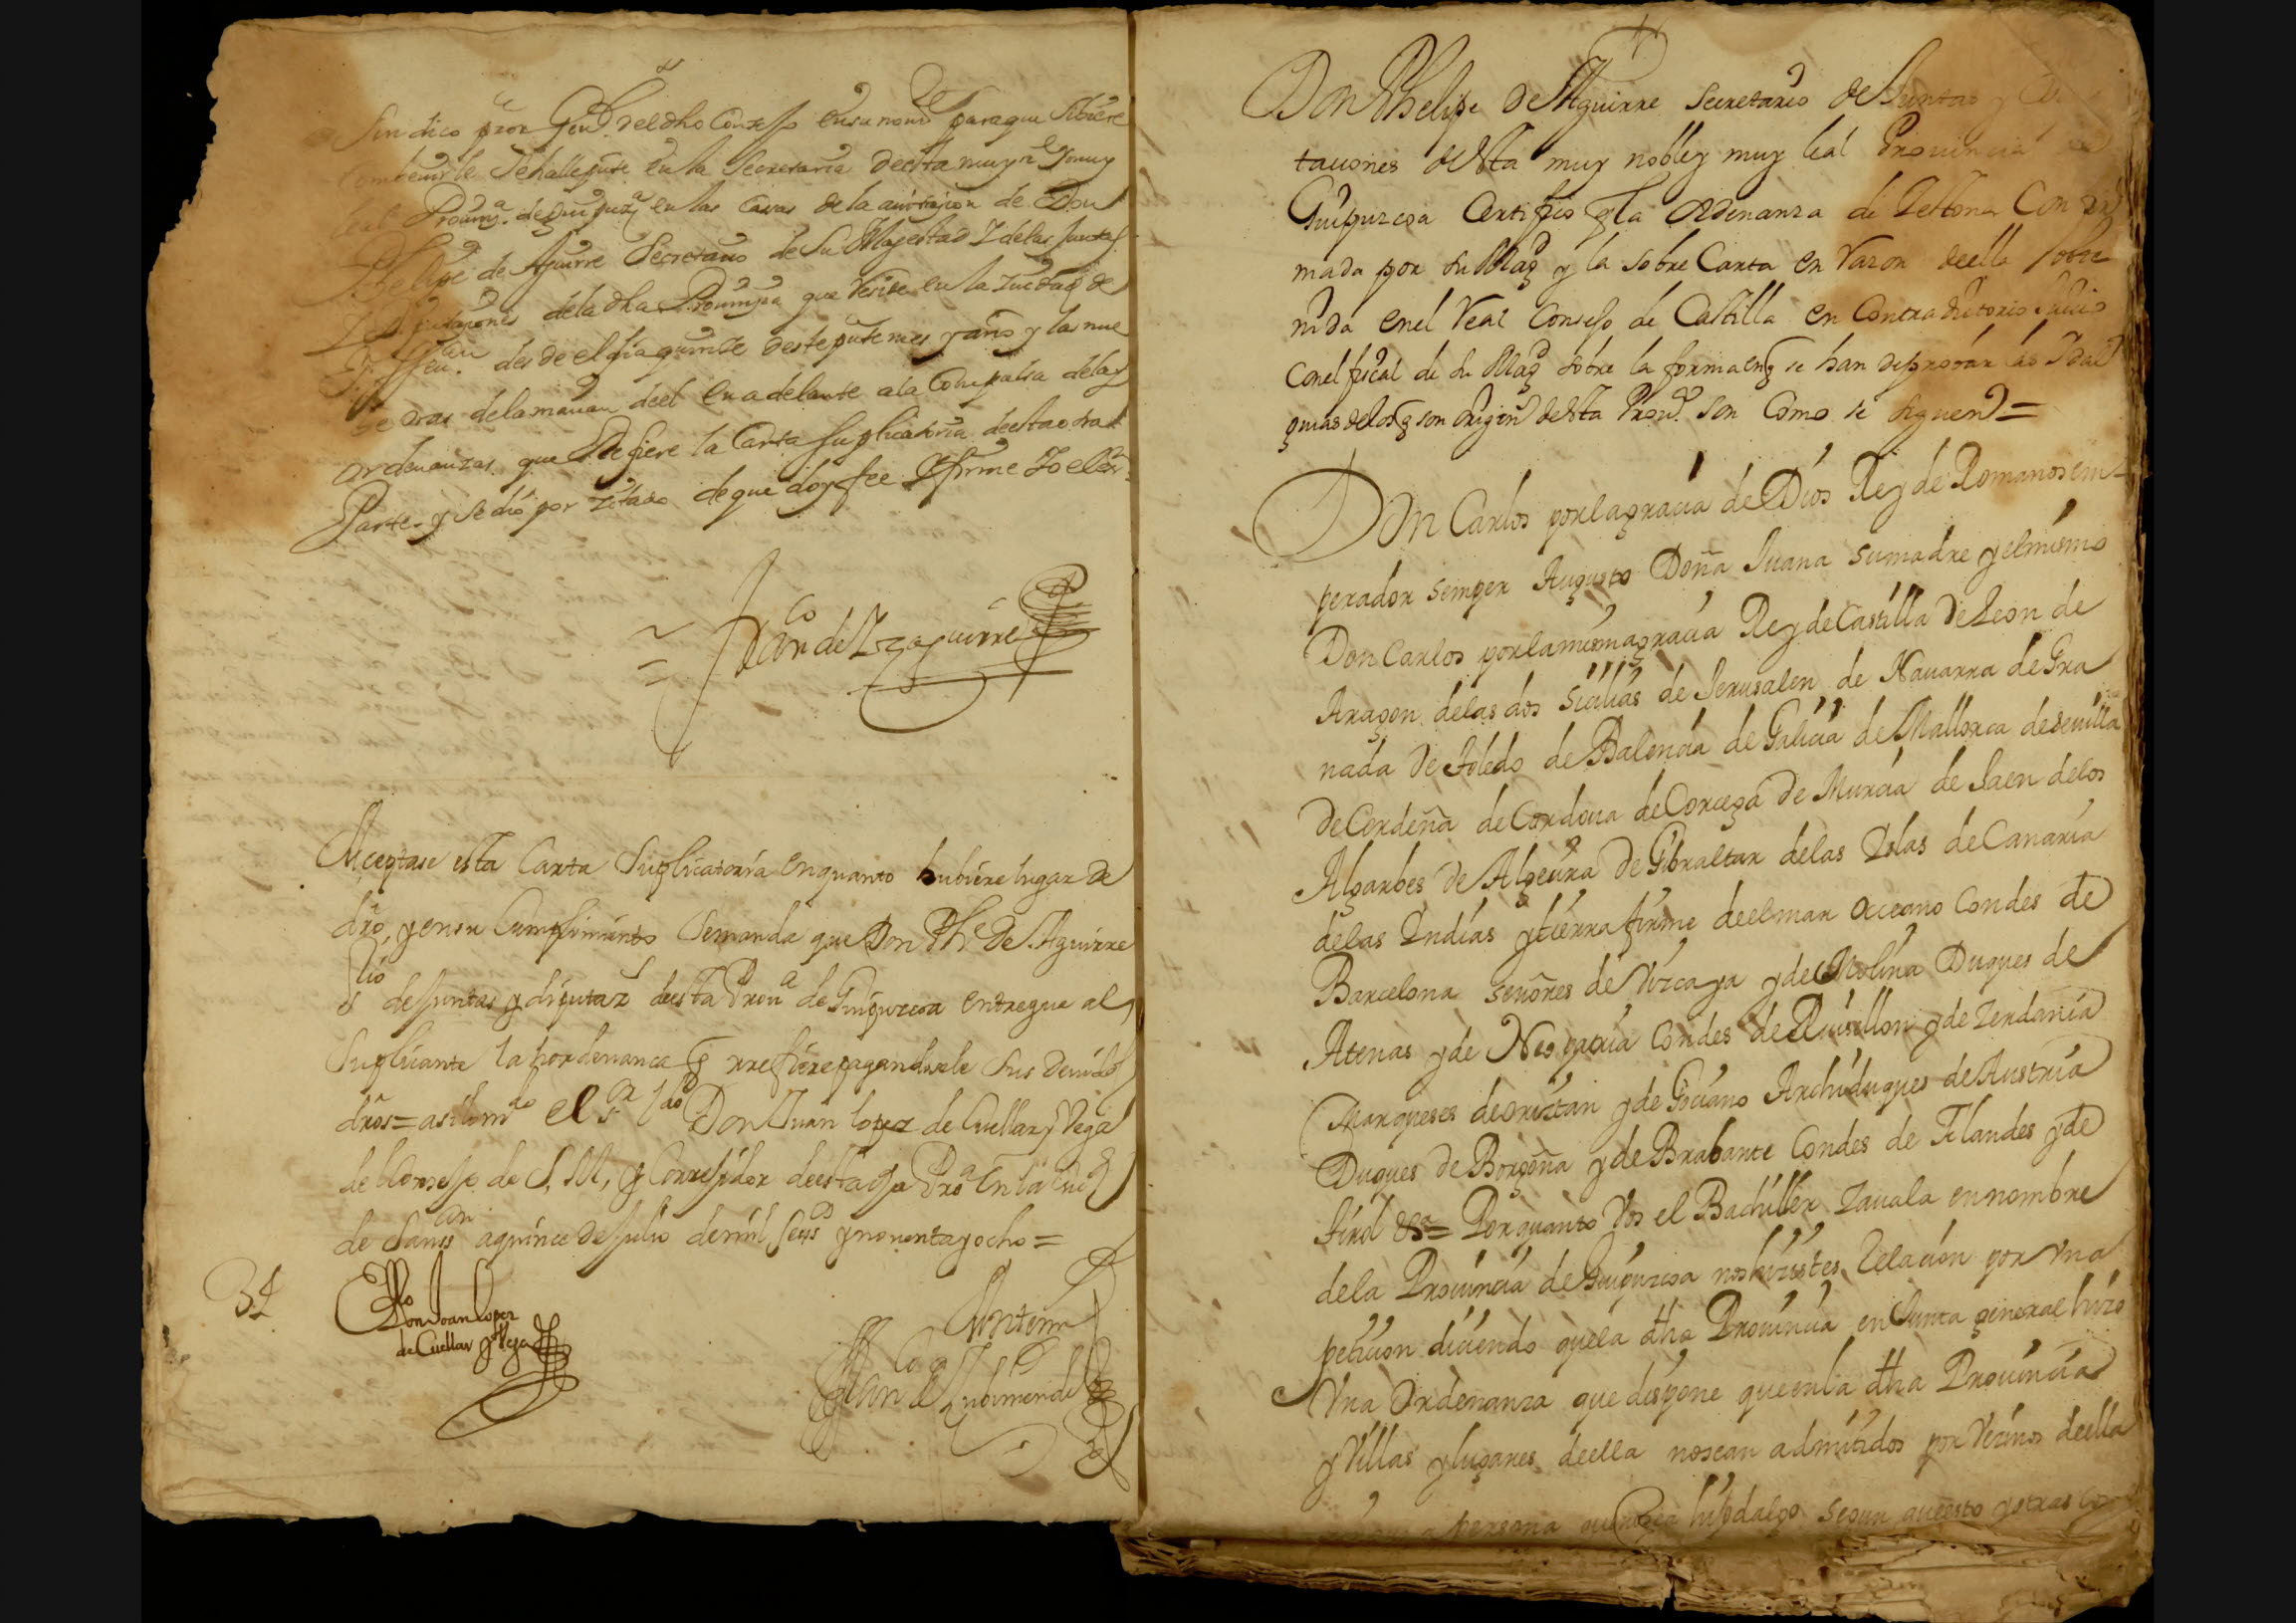 Sindico pror Genl. del dho Consejo en su nome para que si biere
combenirle se halle pnte en la Secretaria desta muy n. y muy
leal Prouinça. de Guipuzca en las casas de la auitaçion de Don
Phelipe de Aguirre Secretario de Su Magestad y de las Juntas
y Diputaçiones de la dha Prouinçia que reside en la Ciudad de
S. Seuan. desde el dia quinze deste pnte mes y año y las nue
be oras de la mañan deel en adelante a la Compulsa de las
ordenanzas que Refiere la Carta suplicatoria desta otra
Parte y se dio por zitado de que doy fee y firme Yo el esr.
= Franco de Yzaguirre
Acceptase esta Carta Suplicatoria en quanto hubiere lugar de
dro, y en su Cumplimiento se manda que Don Phe de Aguirre
srio de Juntas y diputaz desta Proua de Guipuzcoa entregue al
Suplicante la hordenanca q rrefiere pagandosele sus deuidos
dros = asi lo mdo el sr ldo Don Juan lopez de Cuellar y Vega
del Consejo de S. M, y Corregidor desta dha Proa en la ciud
de San Sn a quince de Julio de mil seiss y nouenta y ocho =
Ldo Don Joan Lopez
de Cuellar y Vega
Ante mi
Franco de Yrubimendi
Don Phelipe de Aguirre Secretario de Juntas y Di
taciones desta muy noble y muy leal Prouincia de
Guipuzcoa Certifico q la Ordenanza de Zestona Confir
mada por su Magd y la sobre Carta en razon deella obte
nida en el Real Consejo de Castilla en Contradictorio Juiçio
con el fiscal de su Magd sobre la forma en q se han de prouar las Ydal
guias de los q son originos desta Proua. son como se siguen =
Don Carlos por la gracia de Dios Rey de Romanos em-
perador semper Augusto Doña Juana su madre y el mismo
Don Carlos por la misma gracia Rey de Castilla de Leon de
Aragon de las dos Sicilias de Jerusalen de Nauarra de Gra
nada de Toledo de Balencia de Galicia de Mallorca de seuilla
de Cerdeña de Cordoua de Corcega de Murcia de Jaen de los
Algarbes de Algecira de Gibraltar de las Yslas de Canaria
de las Yndias y tierra firme deel mar occeano Condes de
Barcelona señores de Vizcaya y de Molina Duques de
Atenas y de Neopatria Condes de Rusellon y de Zerdania
Marqueses de oristan y de Goçiano Archiduques de Austria
Duques de Borgoña y de Brabante Condes de Flandes y de
tirol &a = Por quanto Vos el Bachiller Zauala en nombre
de la Prouincia de Guipuzcoa nos hizistes Relacion por Vna
peticion diciendo que la dha Prouincia en Junta general hizo
Vna Ordenanza que dispone que en la dha Prouincia
y Villas y lugares deella no sean admitidos por Vezinos deella
persona que no sea hijodalgo segun que esto y otras